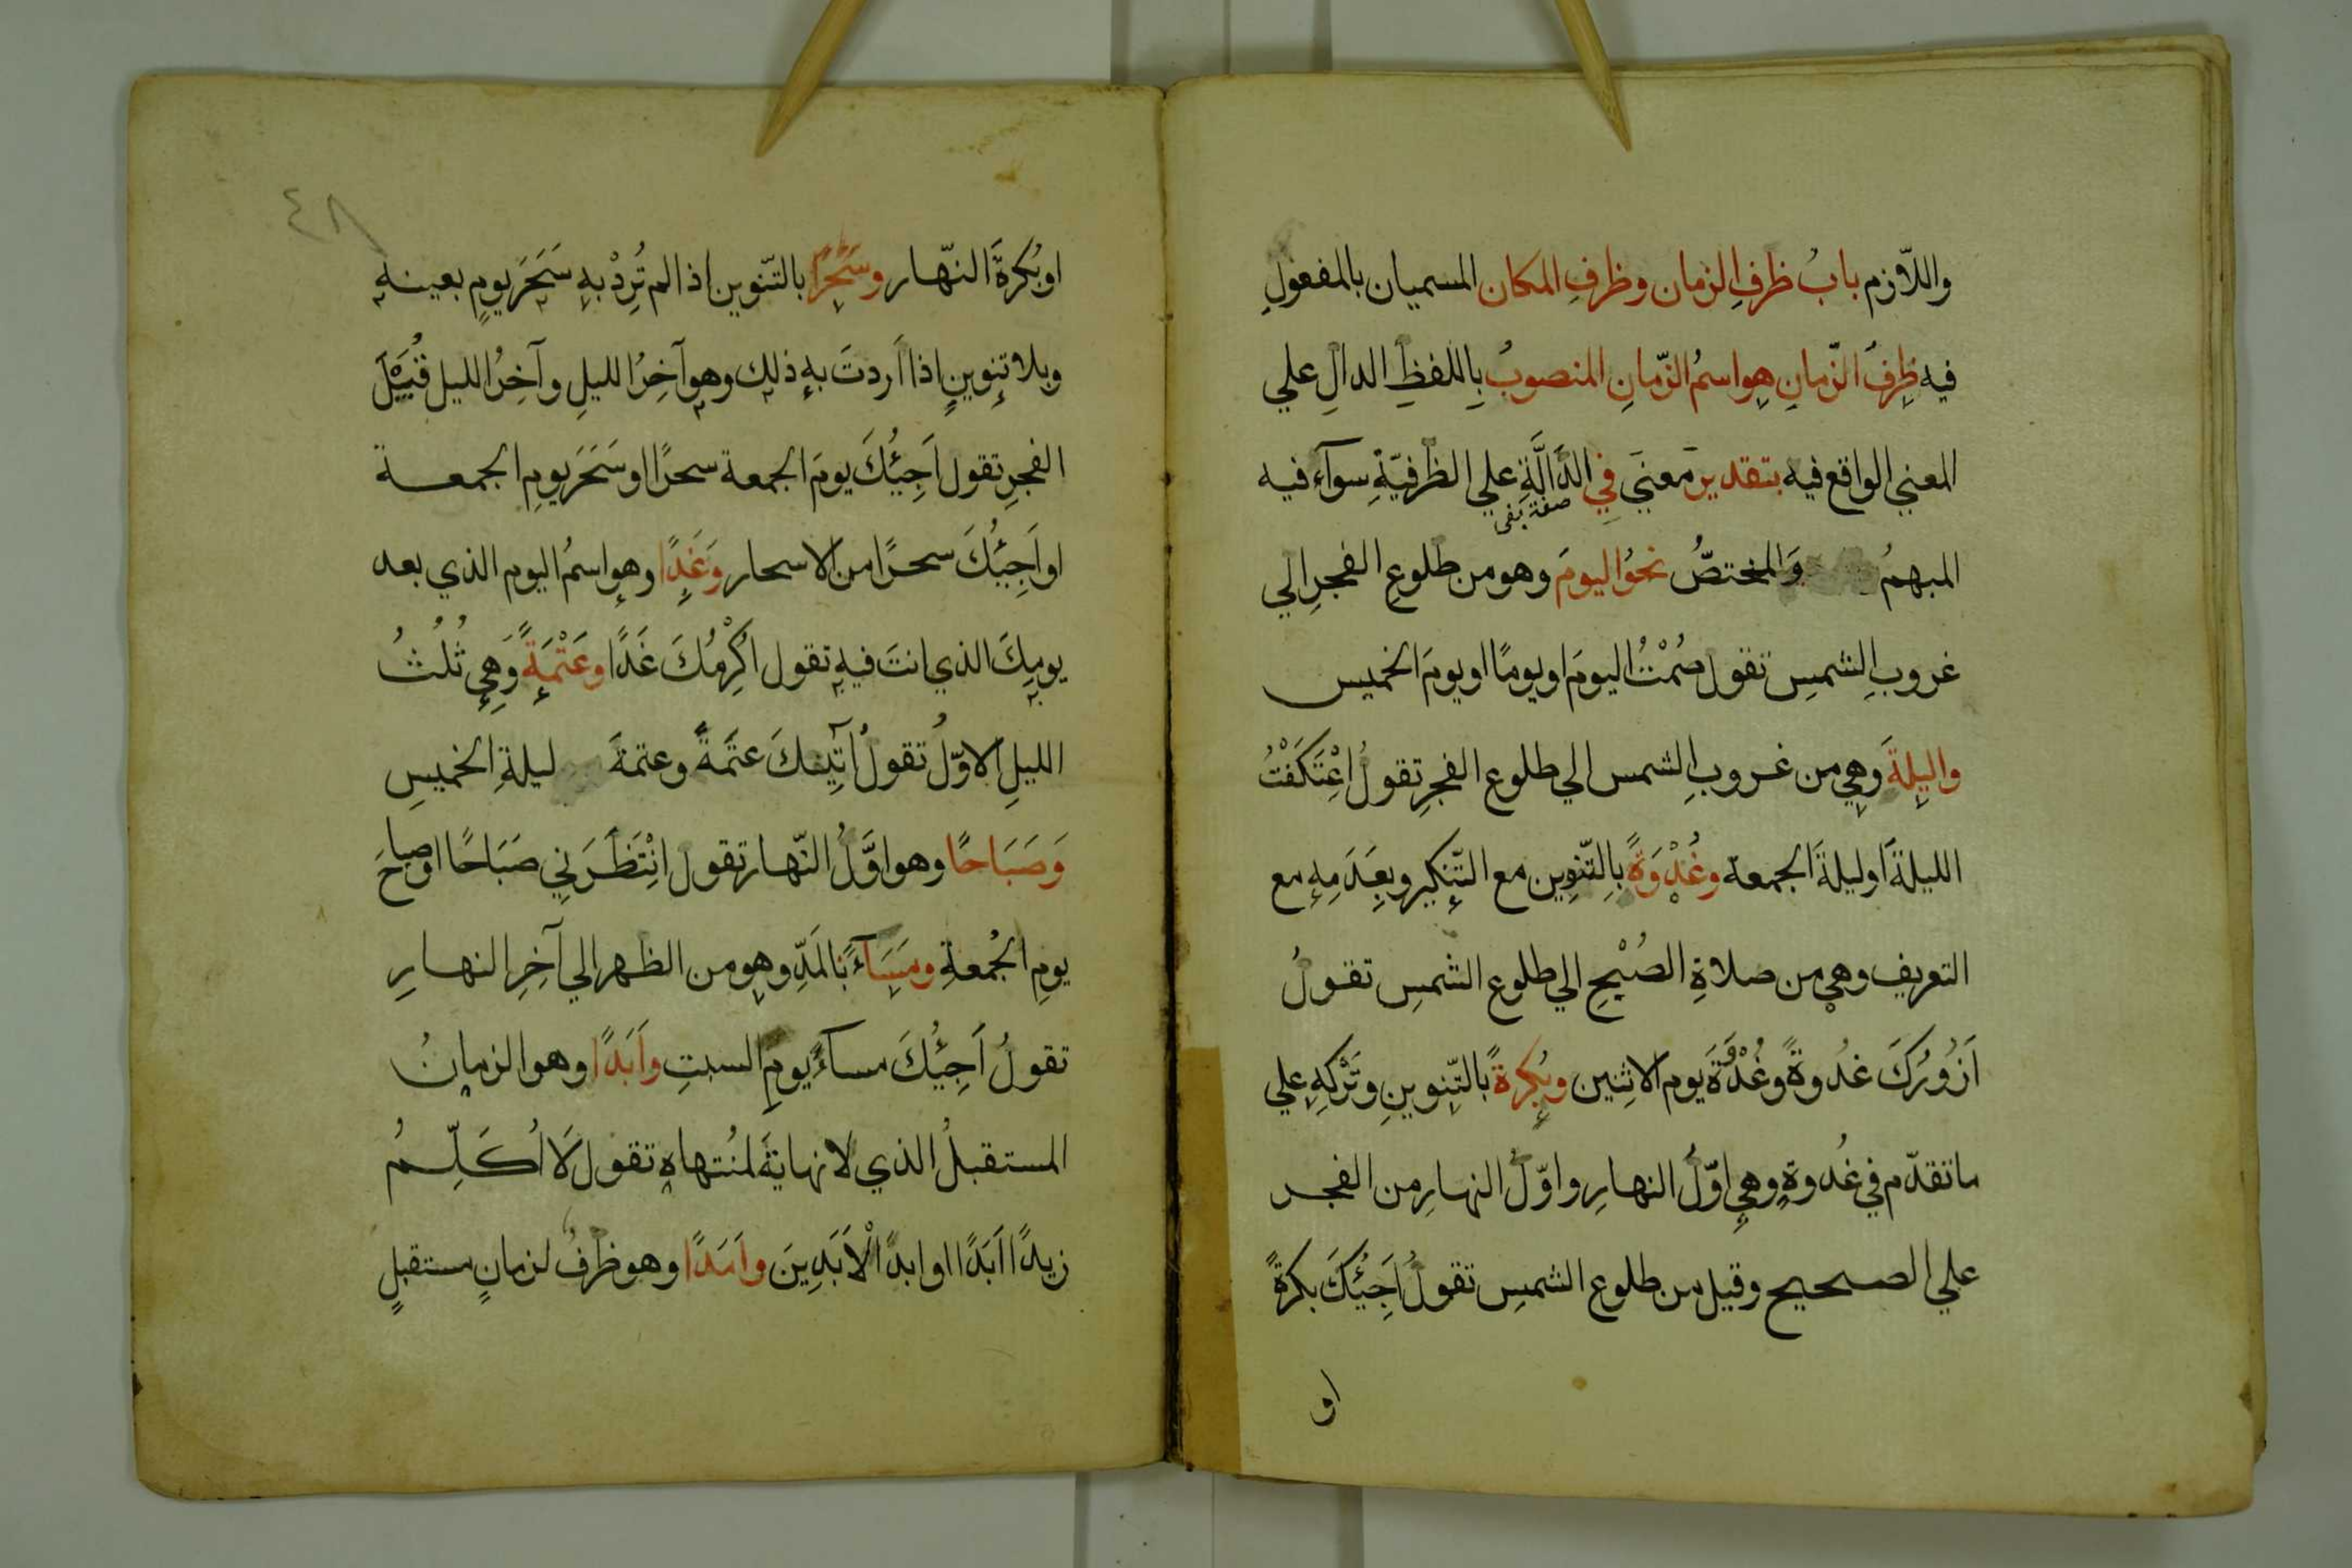 واللازم بابُ ظرفِ الزمان وظرفِ المكان المسميان بالمفعولِ
فيه ظرفُ الزّمانِ هو اسمُ الزّمانِ المنصوبُ بِاللفظِ الدالِ علي
المعني الواقع فيه بتقدير معنَي فِي الدَّالَّةِ علي الظرفيّةِ سوآء فيه
صفة لفى
المبهمُ وَالمختصُّ نحوُ اليومَ وهو من طلوعِ الفجرِ الي
غروبِ الشمسِ تقول صُمْتُ اليومَ او يومًا او يومَ الخميس
واليلةَ وهي من غروبِ الشمس الي طلوع الفجرِ تقولُ اعْتَكَفْتُ
الليلةَ او ليلةَ الجمعة وغُدْوَةً بالتّنوِين مع التّنكير وبِعَدَمِهِ مع
التعريف وهي من صلاةِ الصُبْحِ الي طلوع الشمسِ تقولُ
اَزُورُكَ غُدوةً وغُدْوَةَ يوم الاثنين وبُكرةً بالتّنوينِ وتَرْكِهِ علي
ما تقدّم في غُدوةٍ وهي اوّلُ النهارِ واوّلُ النهارِ من الفجر
علي الصحيح وقيل من طلوع الشمسِ تقولُ اَجِئُكَ بكرةً
او
٤٨
او بُكرةَ النّهار وسَحَرًا بالتّنوين اذا لم تُرِدْ بهِ سَحَرَ يومٍ بعينهِ
وبلا تنوينٍ اذا اَردتَ بهِ ذلك وهو آخِرُ الليلِ وآخِرُ الليل قُبَيْلَ
الفجرِ تقول اَجِئُكَ يومَ الجمعة سحرًا او سَحَرَ يومِ الجمعة
او اَجِئُكَ سحرًا من الاسحار وَغَدًا وهو اسمُ اليوم الذي بعد
يومِكَ الذي انتَ فيهِ تقول اُكْرِمُكَ غَدًا وعَتْمَةً وَهي ثُلُثُ
الليلِ الاوّلُ تقولُ آتيكَ عتَمةً وعتمةَ ليلةِ الخميسِ
وَصَبَاحًا وهو اوَّلُ النّهار تقول انْتَظَرَنِي صَبَاحًا او صباحَ
يومِ الجُمعةِ ومسَآءً بالمَدِّ وهو من الظهر الي آخِرِ النهارِ
تقولُ اَجِئُكَ مسآءَ يومِ السبتِ واَبَدًا وهو الزمانُ
المستقبلُ الذي لا نهايةَ لمُنتهاهِ تقول لَا اُكَلِّمُ
زيدًا اَبَدًا او ابدَ الْاَبَدِينَ واَمَدًا وهو ظرفُ لزمانٍ مستقبلٍ